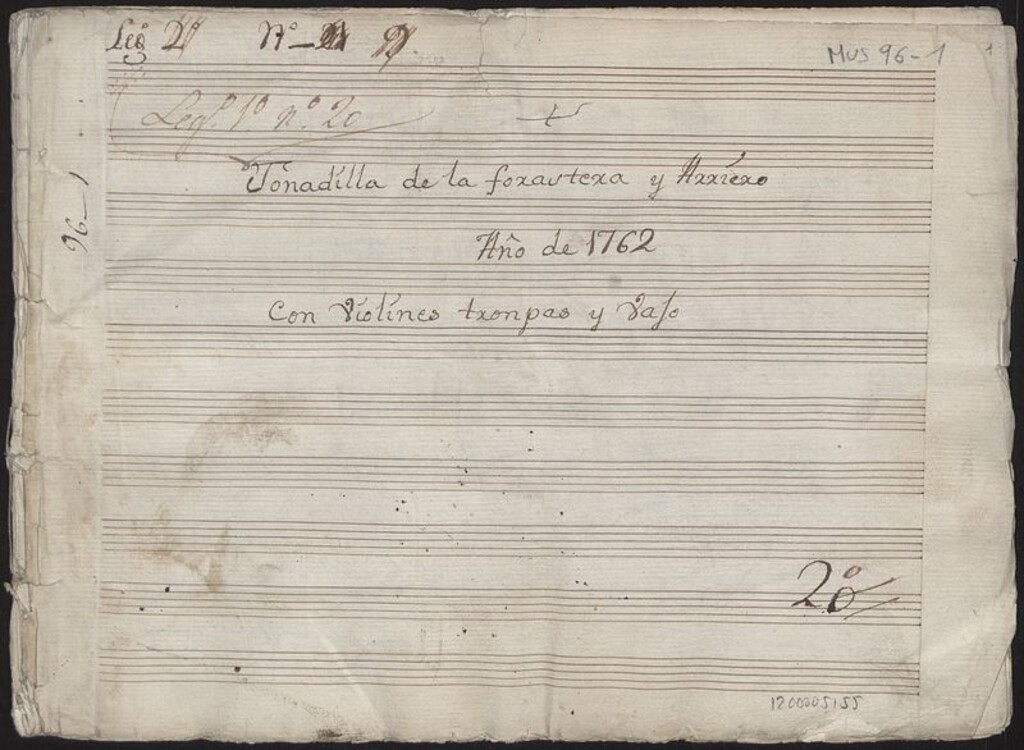 Leg 2 Nº 9
MUS 96-1
1
Legº. 1º nº. 20
96-1
Tonadilla de la forastera y Arriero
Año de 1762
Con Violines tronpas y Vaso
20
1200005155